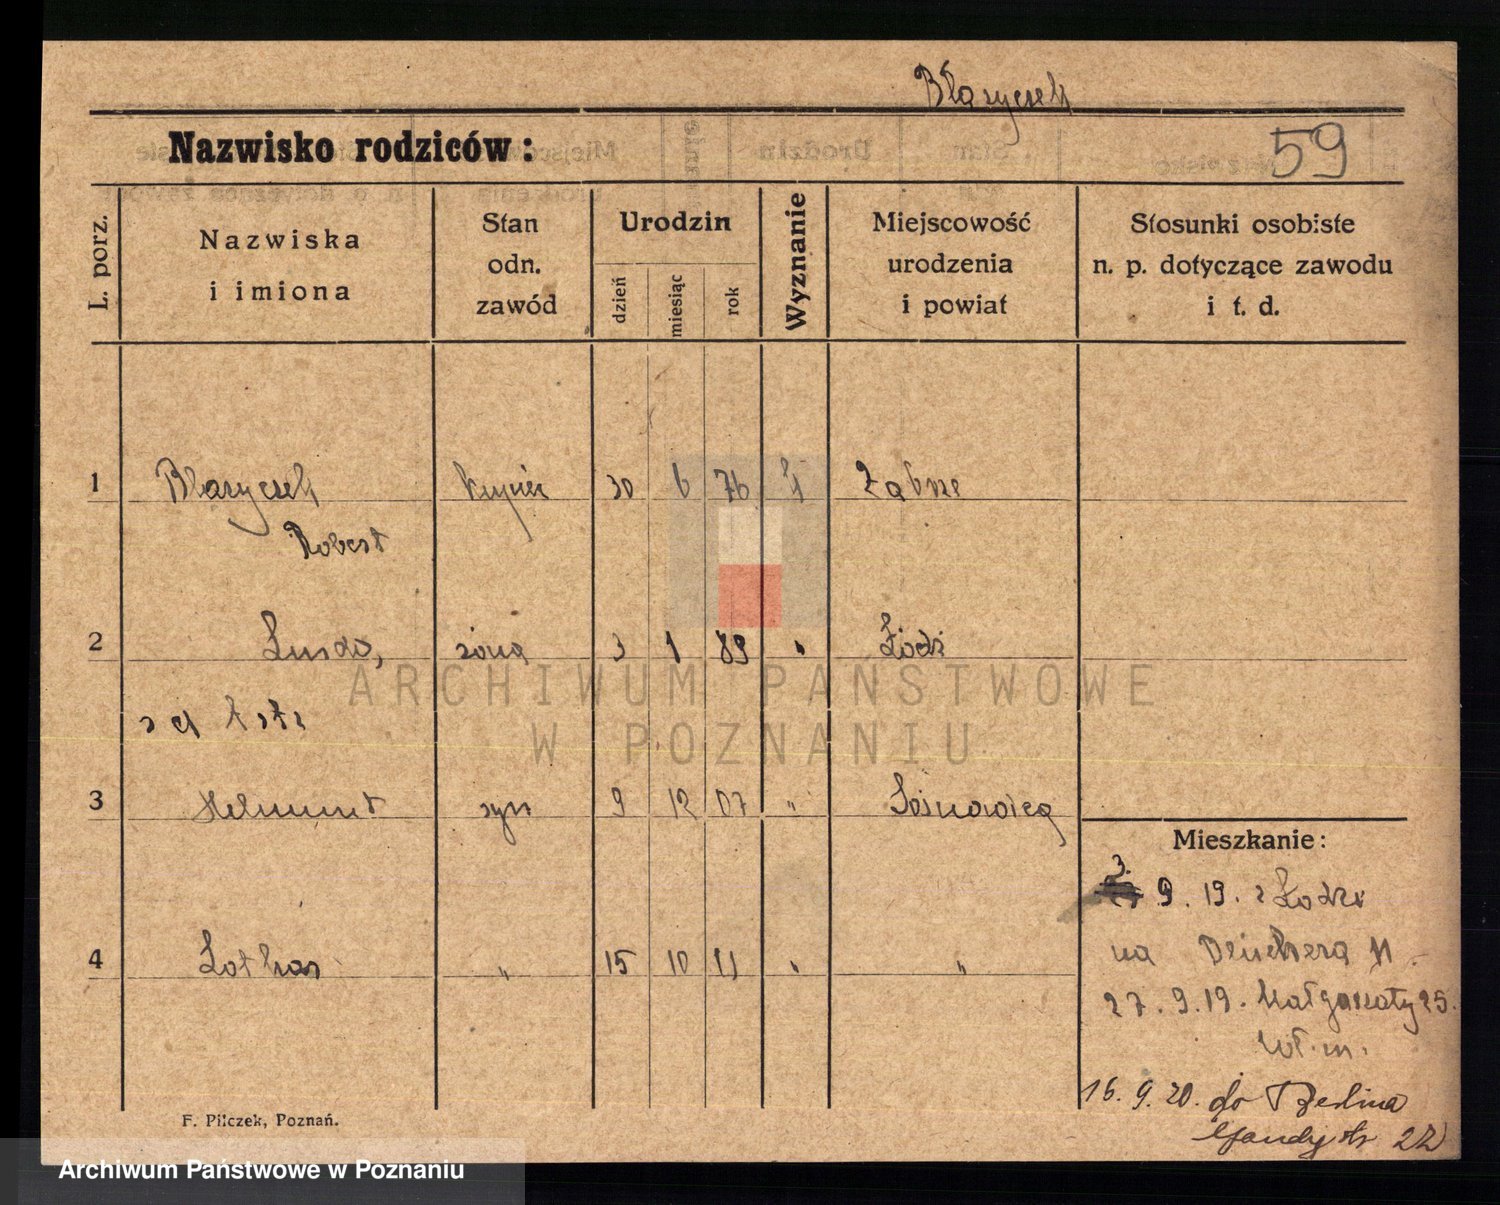 Błazyczek
Nazwisko rodziców:
59
L. porz.
Nazwiska
i imiona
Stan
odn.
zawód
Urodzin
dzień
miesiąc
rok
Wyznanie
Miejscowość
urodzenia
i powiat
Stosunki osobiste
n. p. dotyczące zawodu
i t. d.
1 Błazyczek kupiec 30 6 76 Zabrze
Robert
2 żona 3 1 89 " Łódź
3 Helmunt syn 9 12 07 " Sosnowicą
4 Lothar " 15 10 11 " "
Mieszkanie:
3. 9. 19. z Łodzi
na
27. 9. 19. Małgorzaty 25.
16. 9. 20. do Berlina
22
F. Pilczek, Poznań.
ARCHIWUM PAŃSTWOWE
W POZNANIU
Archiwum Państwowe w Poznaniu